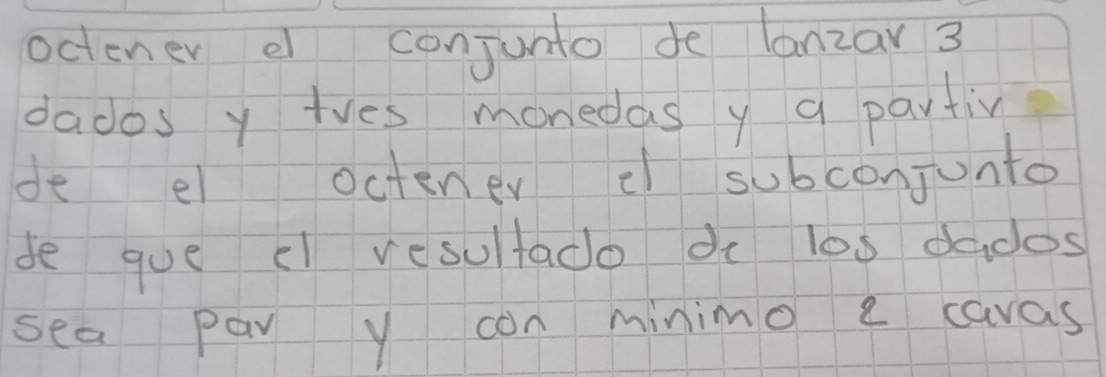 octener el conjunto de lanzar 3
dados y tres monedas y a partir
de el octener el subconjunto
de que el resultado de los dados
sea par y con minimo 2 caras